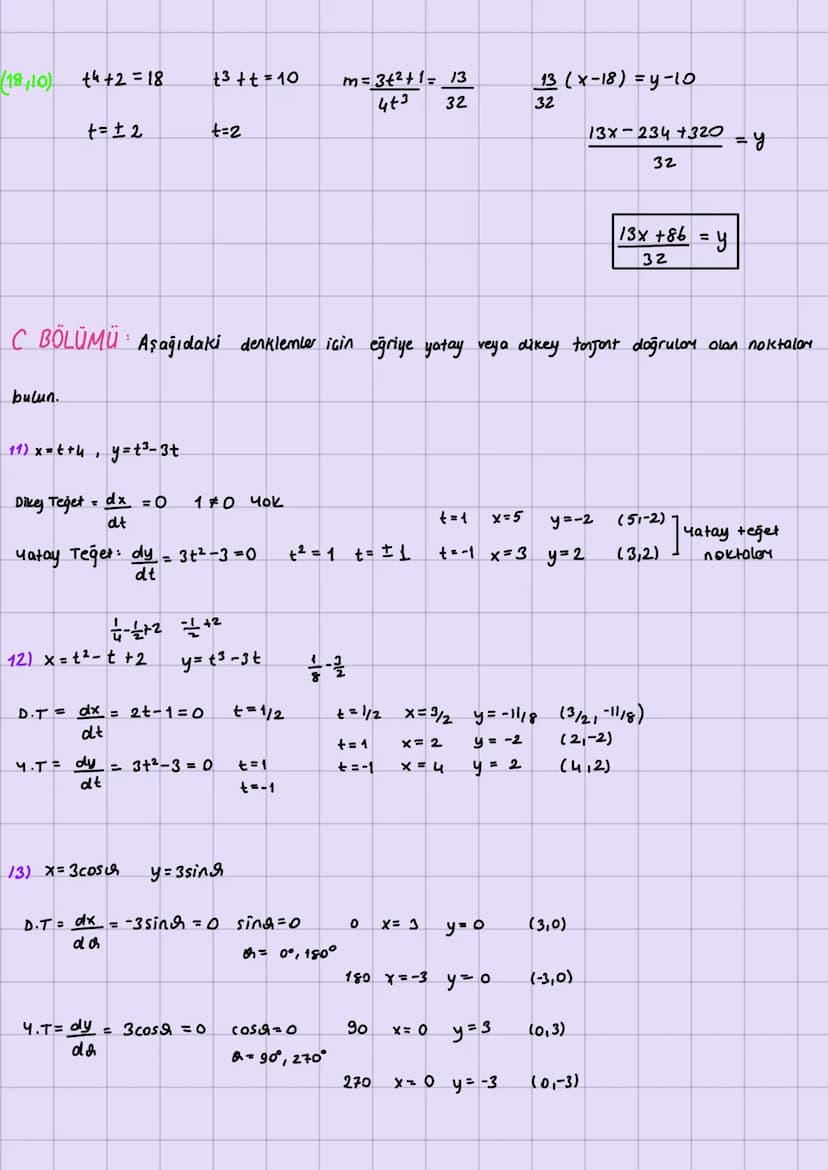 (18,10) t⁴+2=18 t³+t=10 m=3t²+1/4t³=13/32 13/32(x-18)=y-10
t=±2 t=2 13x-234+320/32=y
13x+86/32=y
C BÖLÜMÜ: Aşağıdaki denklemler için eğriye yatay veya dikey tanjant doğruları olan noktaları
bulun.
11) x=t+4, y=t³-3t
Dikey Teğet=dx/dt=0 1≠0 Yok
t=1 x=5 y=-2 (5,-2)
Yatay Teğet: dy/dt=3t²-3=0 t²=1 t=±1 t=-1 x=3 y=2 (3,2) Yatay teğet noktaları
1/4-1/2+2 -1/2+2
12) x=t²-t+2 y=t³-3t 1/8-3/2
D.T=dx/dt=2t-1=0 t=1/2 t=1/2 x=3/2 y=-11/8 (3/2,-11/8)
t=1 x=2 y=-2 (2,-2)
Y.T=dy/dt=3t²-3=0 t=1 t=-1 x=4 y=2 (4,2)
t=-1
13) x=3cosθ y=3sinθ
D.T=dx/dθ=-3sinθ=0 sinθ=0 0 x=3 y=0 (3,0)
θ=0°,180°
180 x=-3 y=0 (-3,0)
Y.T=dy/dθ=3cosθ=0 cosθ=0 90 x=0 y=3 (0,3)
θ=90°,270°
270 x=0 y=-3 (0,-3)